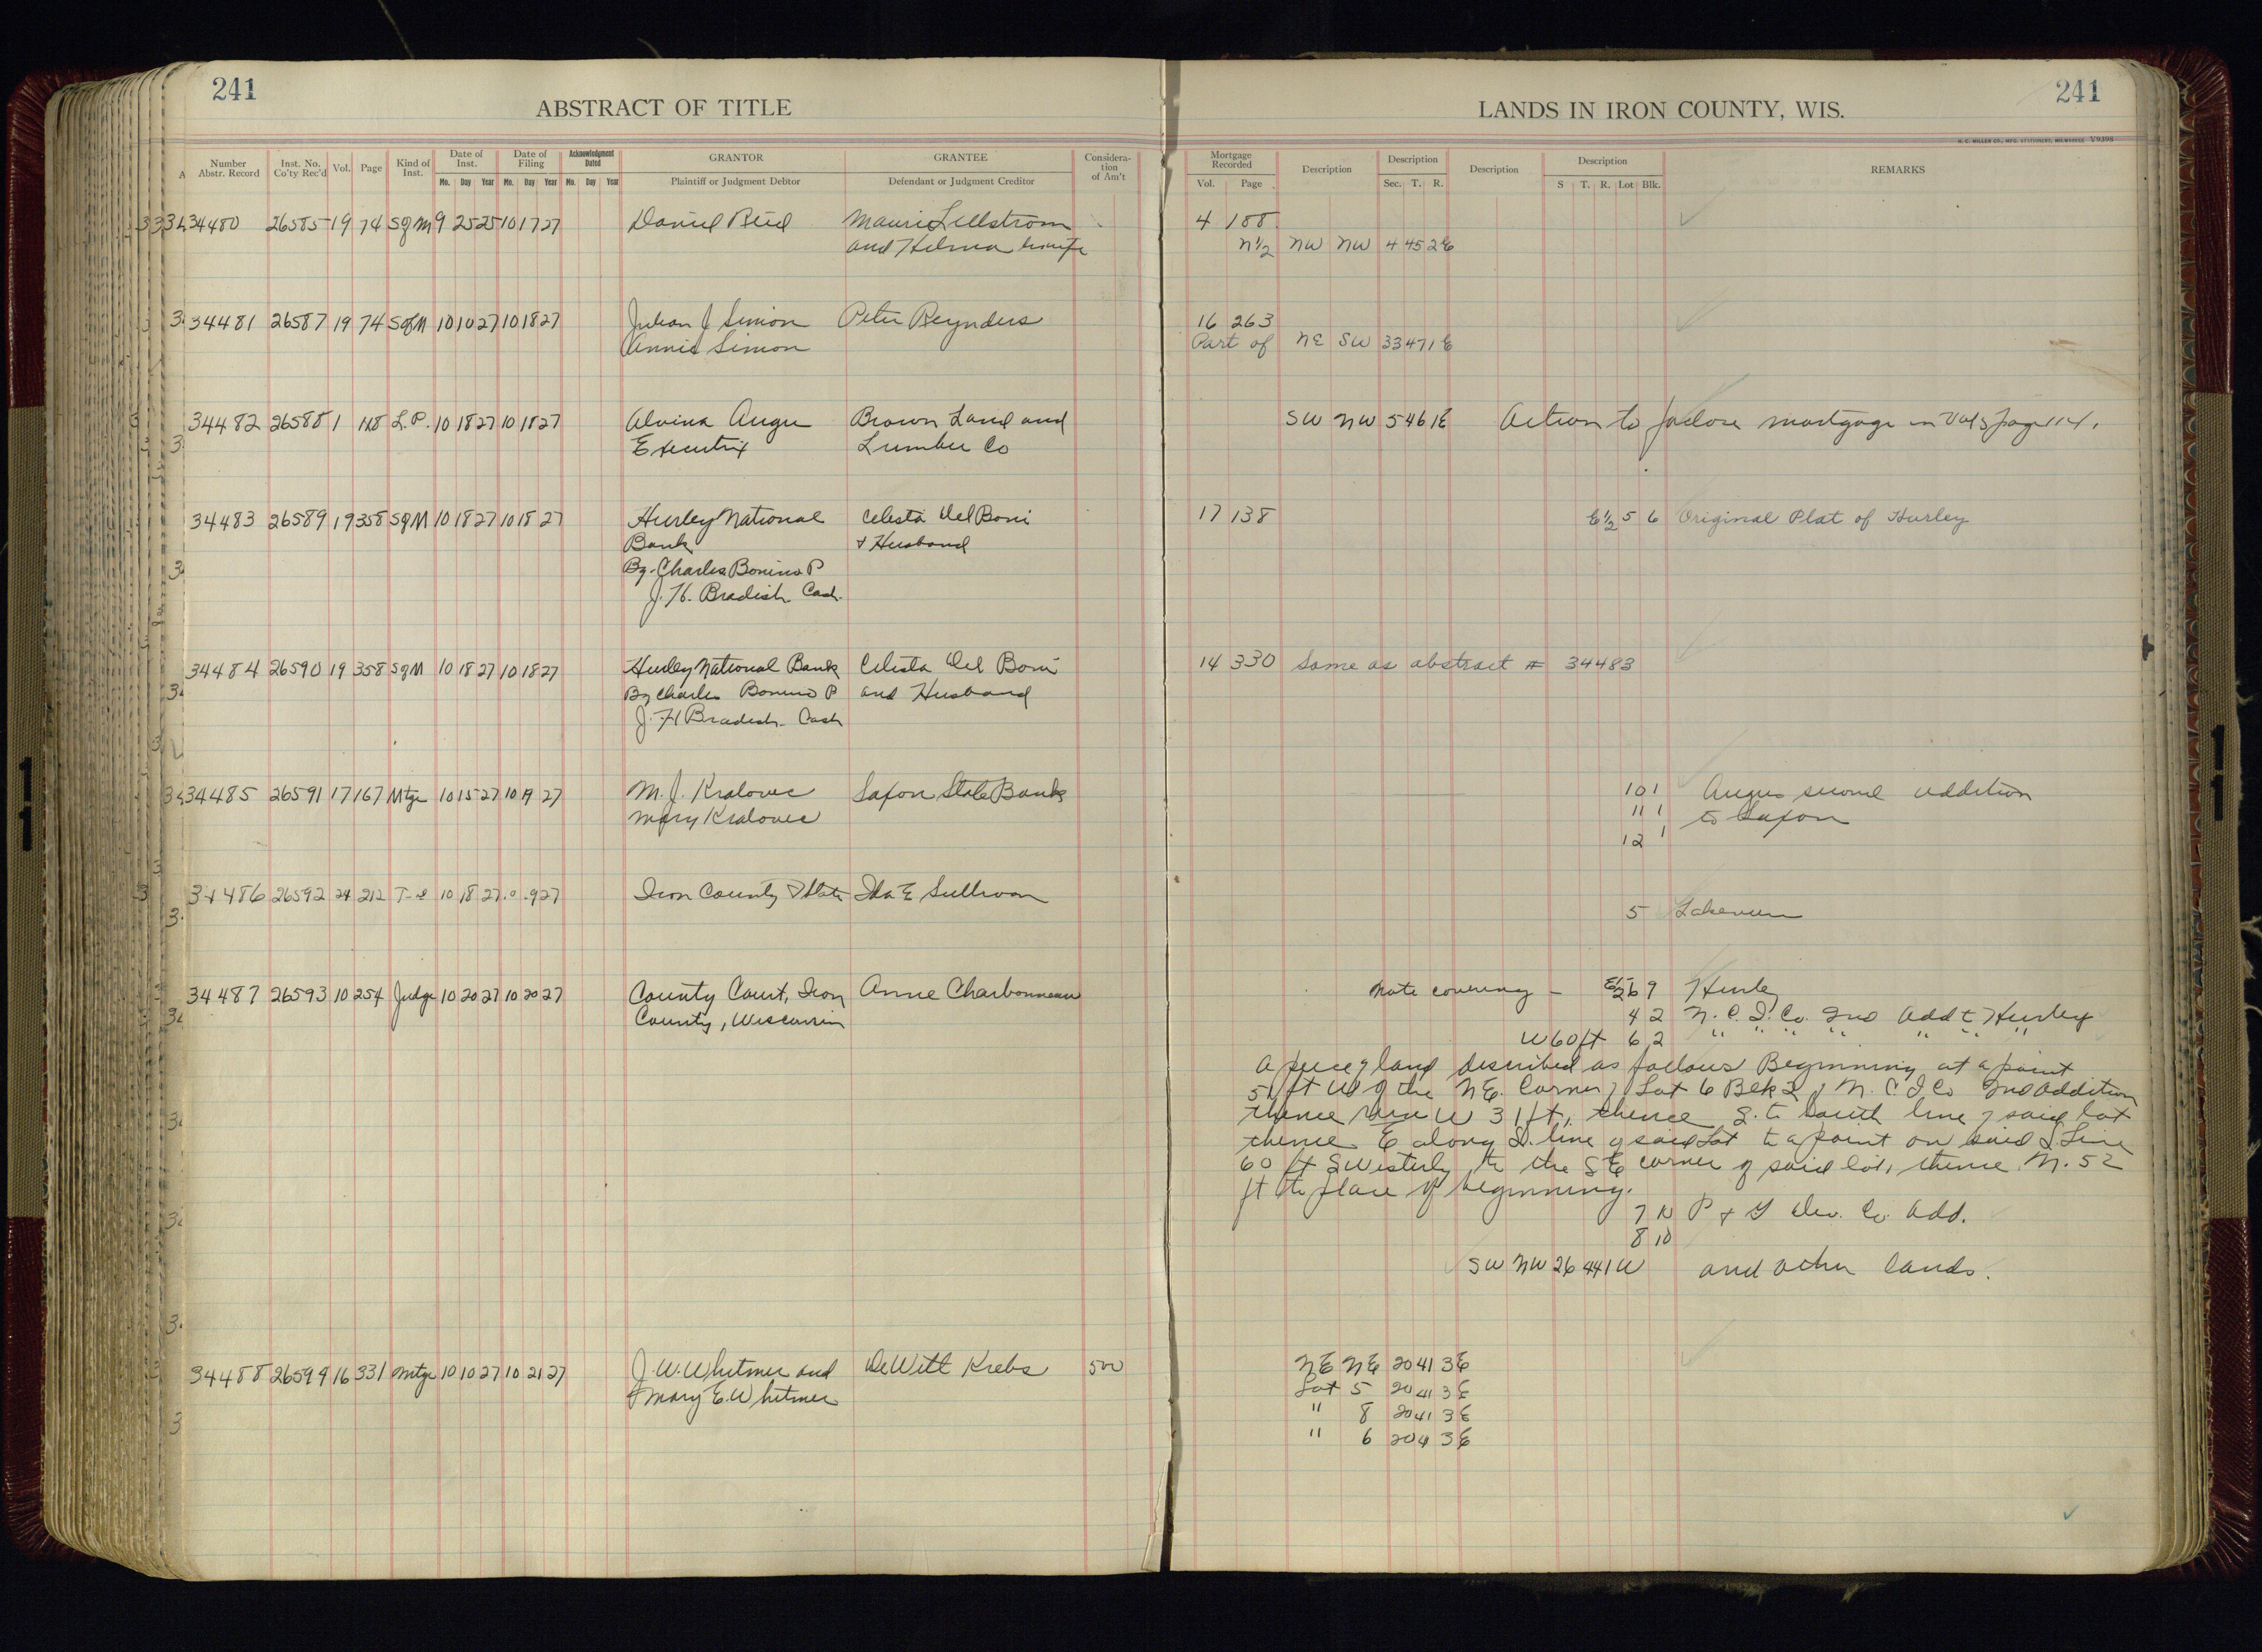 241
ABSTRACT OF TITLE
LANDS IN IRON COUNTY, WIS.
241
H. C. MILLER CO., MFG. STATIONERS, MILWAUKEE V9398
Number Abstr. Record Inst. No. Co'ty Rec'd Vol. Page Kind of Inst. Date of Inst. Mo. Day Year Date of Filing Mo. Day Year Acknowledgment Dated Mo. Day Year GRANTOR Plaintiff or Judgment Debtor GRANTEE Defendant or Judgment Creditor Consideration of Am't Mortgage Recorded Vol. Page Description Description Sec. T. R. Description Description S T. R. Lot Blk. REMARKS
34480 26585 19 74 SgM 9 25 25 10 17 27 Daniel Reid 4 188
and Hilma his wife N1/2 NW NW 4 45 2E
34481 26587 19 74 SgM 10 10 27 10 18 27 Julian J Simon Peter Reynders 16 263
Annie Simon Part of NE SW 33 47 1E
34482 26588 1 L.P. 10 18 27 10 18 27 Alvina Angu Brown Land and SW NW 5 46 1E Action to foreclose mortgage in Vol 5 page 114.
Executrix Lumber Co
34483 26589 19 358 SgM 10 18 27 10 18 27 Hurley National Celesta Del Boni 17 138 E1/2 5 6 Original Plat of Hurley
Bank & Husband
By Charles Bonino P
J. H. Bradish Cash.
34484 26590 19 358 SgM 10 18 27 10 18 27 Hurley National Bank Celesta Del Boni 14 330 Same as abstract # 34483
By Charles Bonino P and Husband
J. H Bradish Cash
34485 26591 17 167 Mtge 10 15 27 10 19 27 M. J. Kralovec Saxon State Bank 10 1 Angus second addition
Mary Kralovec 11 1 to Saxon
12 1
34486 26592 24 212 10 18 27 Iron County & State Ida E Sullivan
5 Lakeview
34487 26593 10 254 Judge 10 20 27 10 20 27 County Court, Iron Anne Charbonneau Note covering - E1/2 6 9 Hurley
County, Wisconsin 4 2 N. C. I. Co. 2nd Add to Hurley
W 60 ft 6 2 " " " " " " "
A piece of land described as follows Beginning at a point
51 ft W of the NE. Corner of Lot 6 Blk 2 of N. C. I Co 2nd Addition
thence run W 31 ft, thence S. to south line of said lot
thence E along S. line of said Lot to a point on said S. Line
60 ft SWesterly to the SE corner of said lot, thence N. 52
ft to place of beginning.
7 10 P & G Dev. Co. Add.
8 10
SW NW 26 44 1W and other lands.
34488 26599 16 331 Mtge 10 10 27 10 21 27 J. W. Whitmer and DeWitt Krebs 500 NE NE 20 41 3E
Mary E. Whitmer Lot 5 20 41 3E
" 8 20 41 3E
" 6 20 4 3E